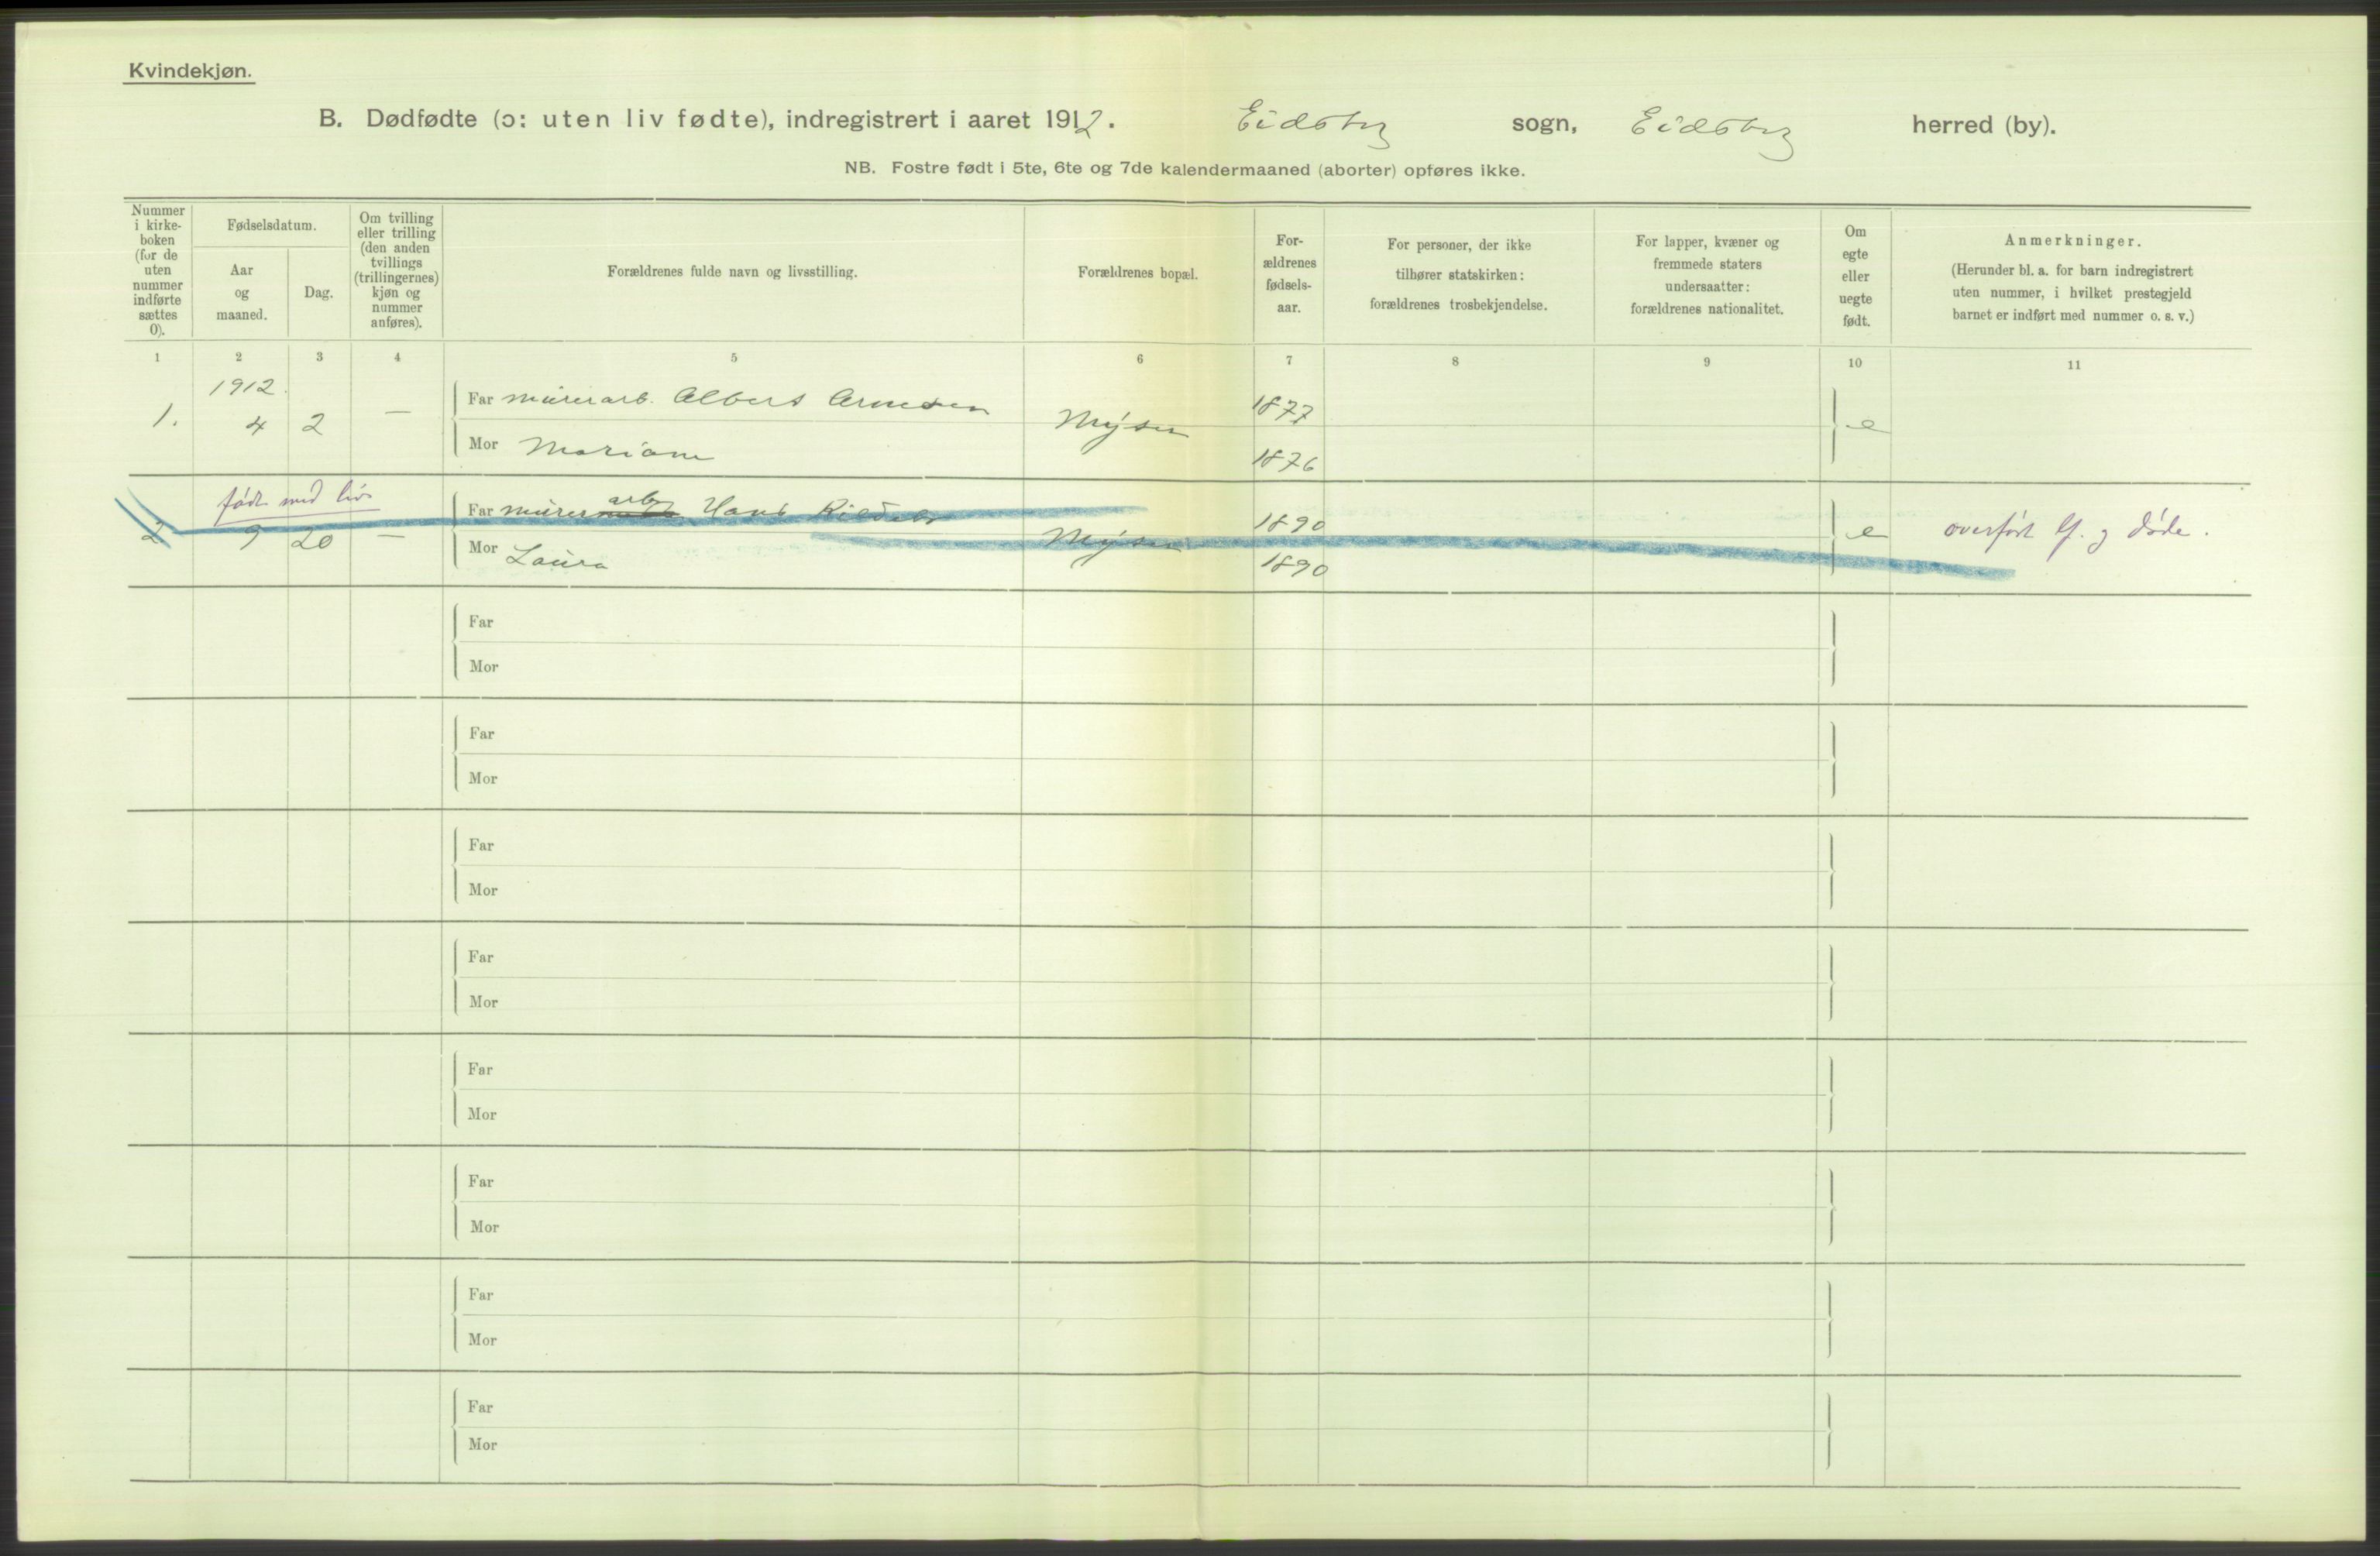 Kvindekjøn.
B. Dødfødte (ɔ: uten liv fødte), indregistrert i aaret 1912. Eidsberg sogn, Eidsberg herred (by).
NB. Fostre født i 5te, 6te og 7de kalendermaaned (aborter) opføres ikke.
Nummer i kirke- boken (for de uten nummer indførte sættes 0).
Fødselsdatum.
Aar og maaned.
Dag.
Om tvilling eller trilling (den anden tvillings (trillingernes) kjøn og nummer anføres).
Forældrenes fulde navn og livsstilling.
Forældrenes bopæl.
For- ældrenes fødsels- aar.
For personer, der ikke tilhører statskirken: forældrenes trosbekjendelse.
For lapper, kvæner og fremmede staters undersaatter: forældrenes nationalitet.
Om egte eller uegte født.
Anmerkninger.
(Herunder bl. a. for barn indregistrert uten nummer, i hvilket prestegjeld barnet er indført med nummer o. s. v.)
1 2 3 4 5 6 7 8 9 10 11
1912.
1. 4 2 — Far murerarb. Albert Arnesen Mysen 1877 e
Mor Mariane 1876
født med liv
2 9 20 — Far murer arb. Hans Mysen 1890 e overført lf. og døde.
Mor Laura 1890
Far
Mor
Far
Mor
Far
Mor
Far
Mor
Far
Mor
Far
Mor
Far
Mor
Far
Mor